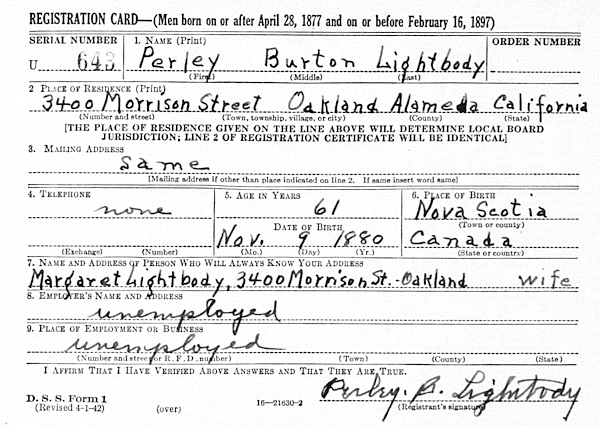 REGISTRATION CARD—(Men born on or after April 28, 1877 and on or before February 16, 1897)
SERIAL NUMBER 1. NAME (Print) ORDER NUMBER
U 643 Perley Burton Lightbody
(First) (Middle) (Last)
2 PLACE OF RESIDENCE (Print)
3400 Morrison Street Oakland Alameda California
(Number and street) (Town, township, village, or city) (County) (State)
[THE PLACE OF RESIDENCE GIVEN ON THE LINE ABOVE WILL DETERMINE LOCAL BOARD
JURISDICTION; LINE 2 OF REGISTRATION CERTIFICATE WILL BE IDENTICAL]
3. MAILING ADDRESS
same
[Mailing address if other than place indicated on line 2. If same insert word same]
4. TELEPHONE 5. AGE IN YEARS 6. PLACE OF BIRTH
none 61 Nova Scotia
DATE OF BIRTH (Town or county)
Nov. 9 1880 Canada
(Exchange) (Number) (Mo.) (Day) (Yr.) (State or country)
7. NAME AND ADDRESS OF PERSON WHO WILL ALWAYS KNOW YOUR ADDRESS
Margaret Lightbody, 3400 Morrison St.-Oakland wife
8. EMPLOYER'S NAME AND ADDRESS
unemployed
9. PLACE OF EMPLOYMENT OR BUSINESS
unemployed
(Number and street or R. F. D. number) (Town) (County) (State)
I AFFIRM THAT I HAVE VERIFIED ABOVE ANSWERS AND THAT THEY ARE TRUE.
Perley. B. Lightbody
D. S. S. Form 1 (Registrant's signature)
(Revised 4-1-42) (over) 16—21630-2